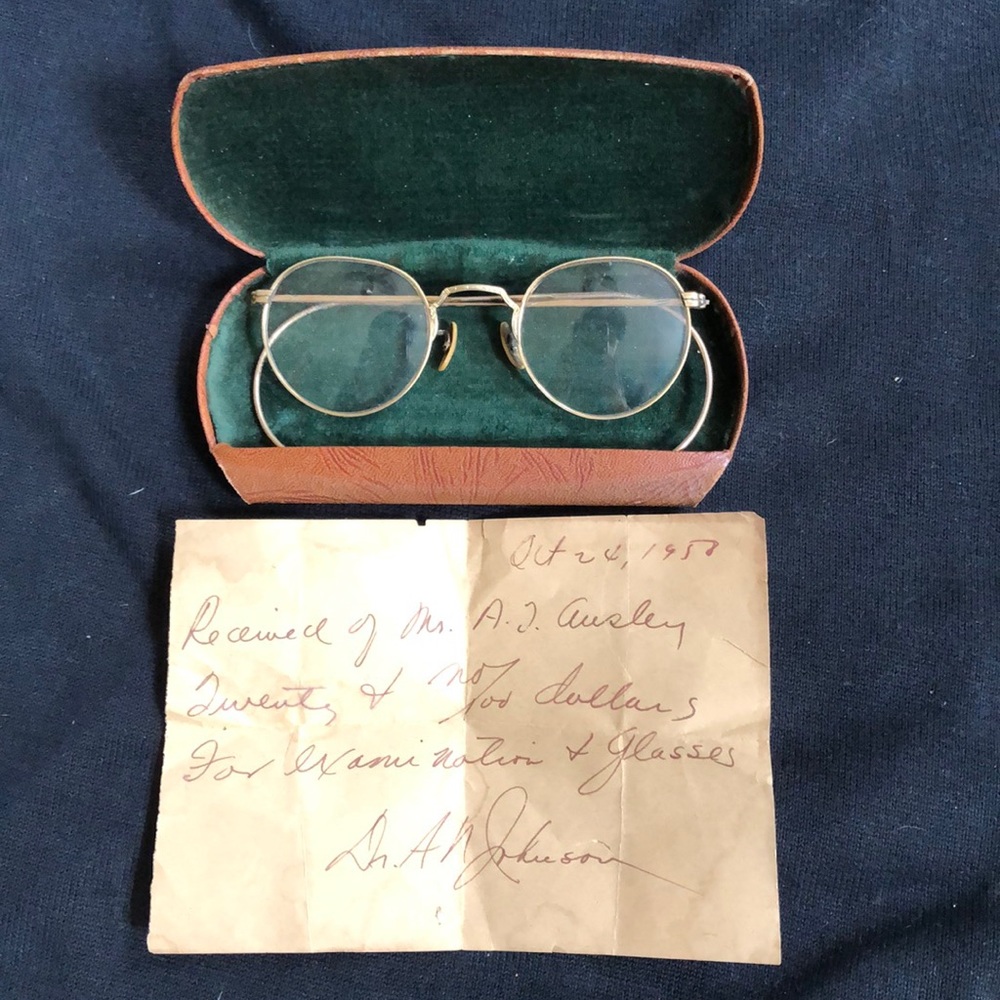 Oct 24, 1950
Received of Mr. A. J. Ausley
Twenty & no/100 dollars
For examination & Glasses
Dr. A N Johnson